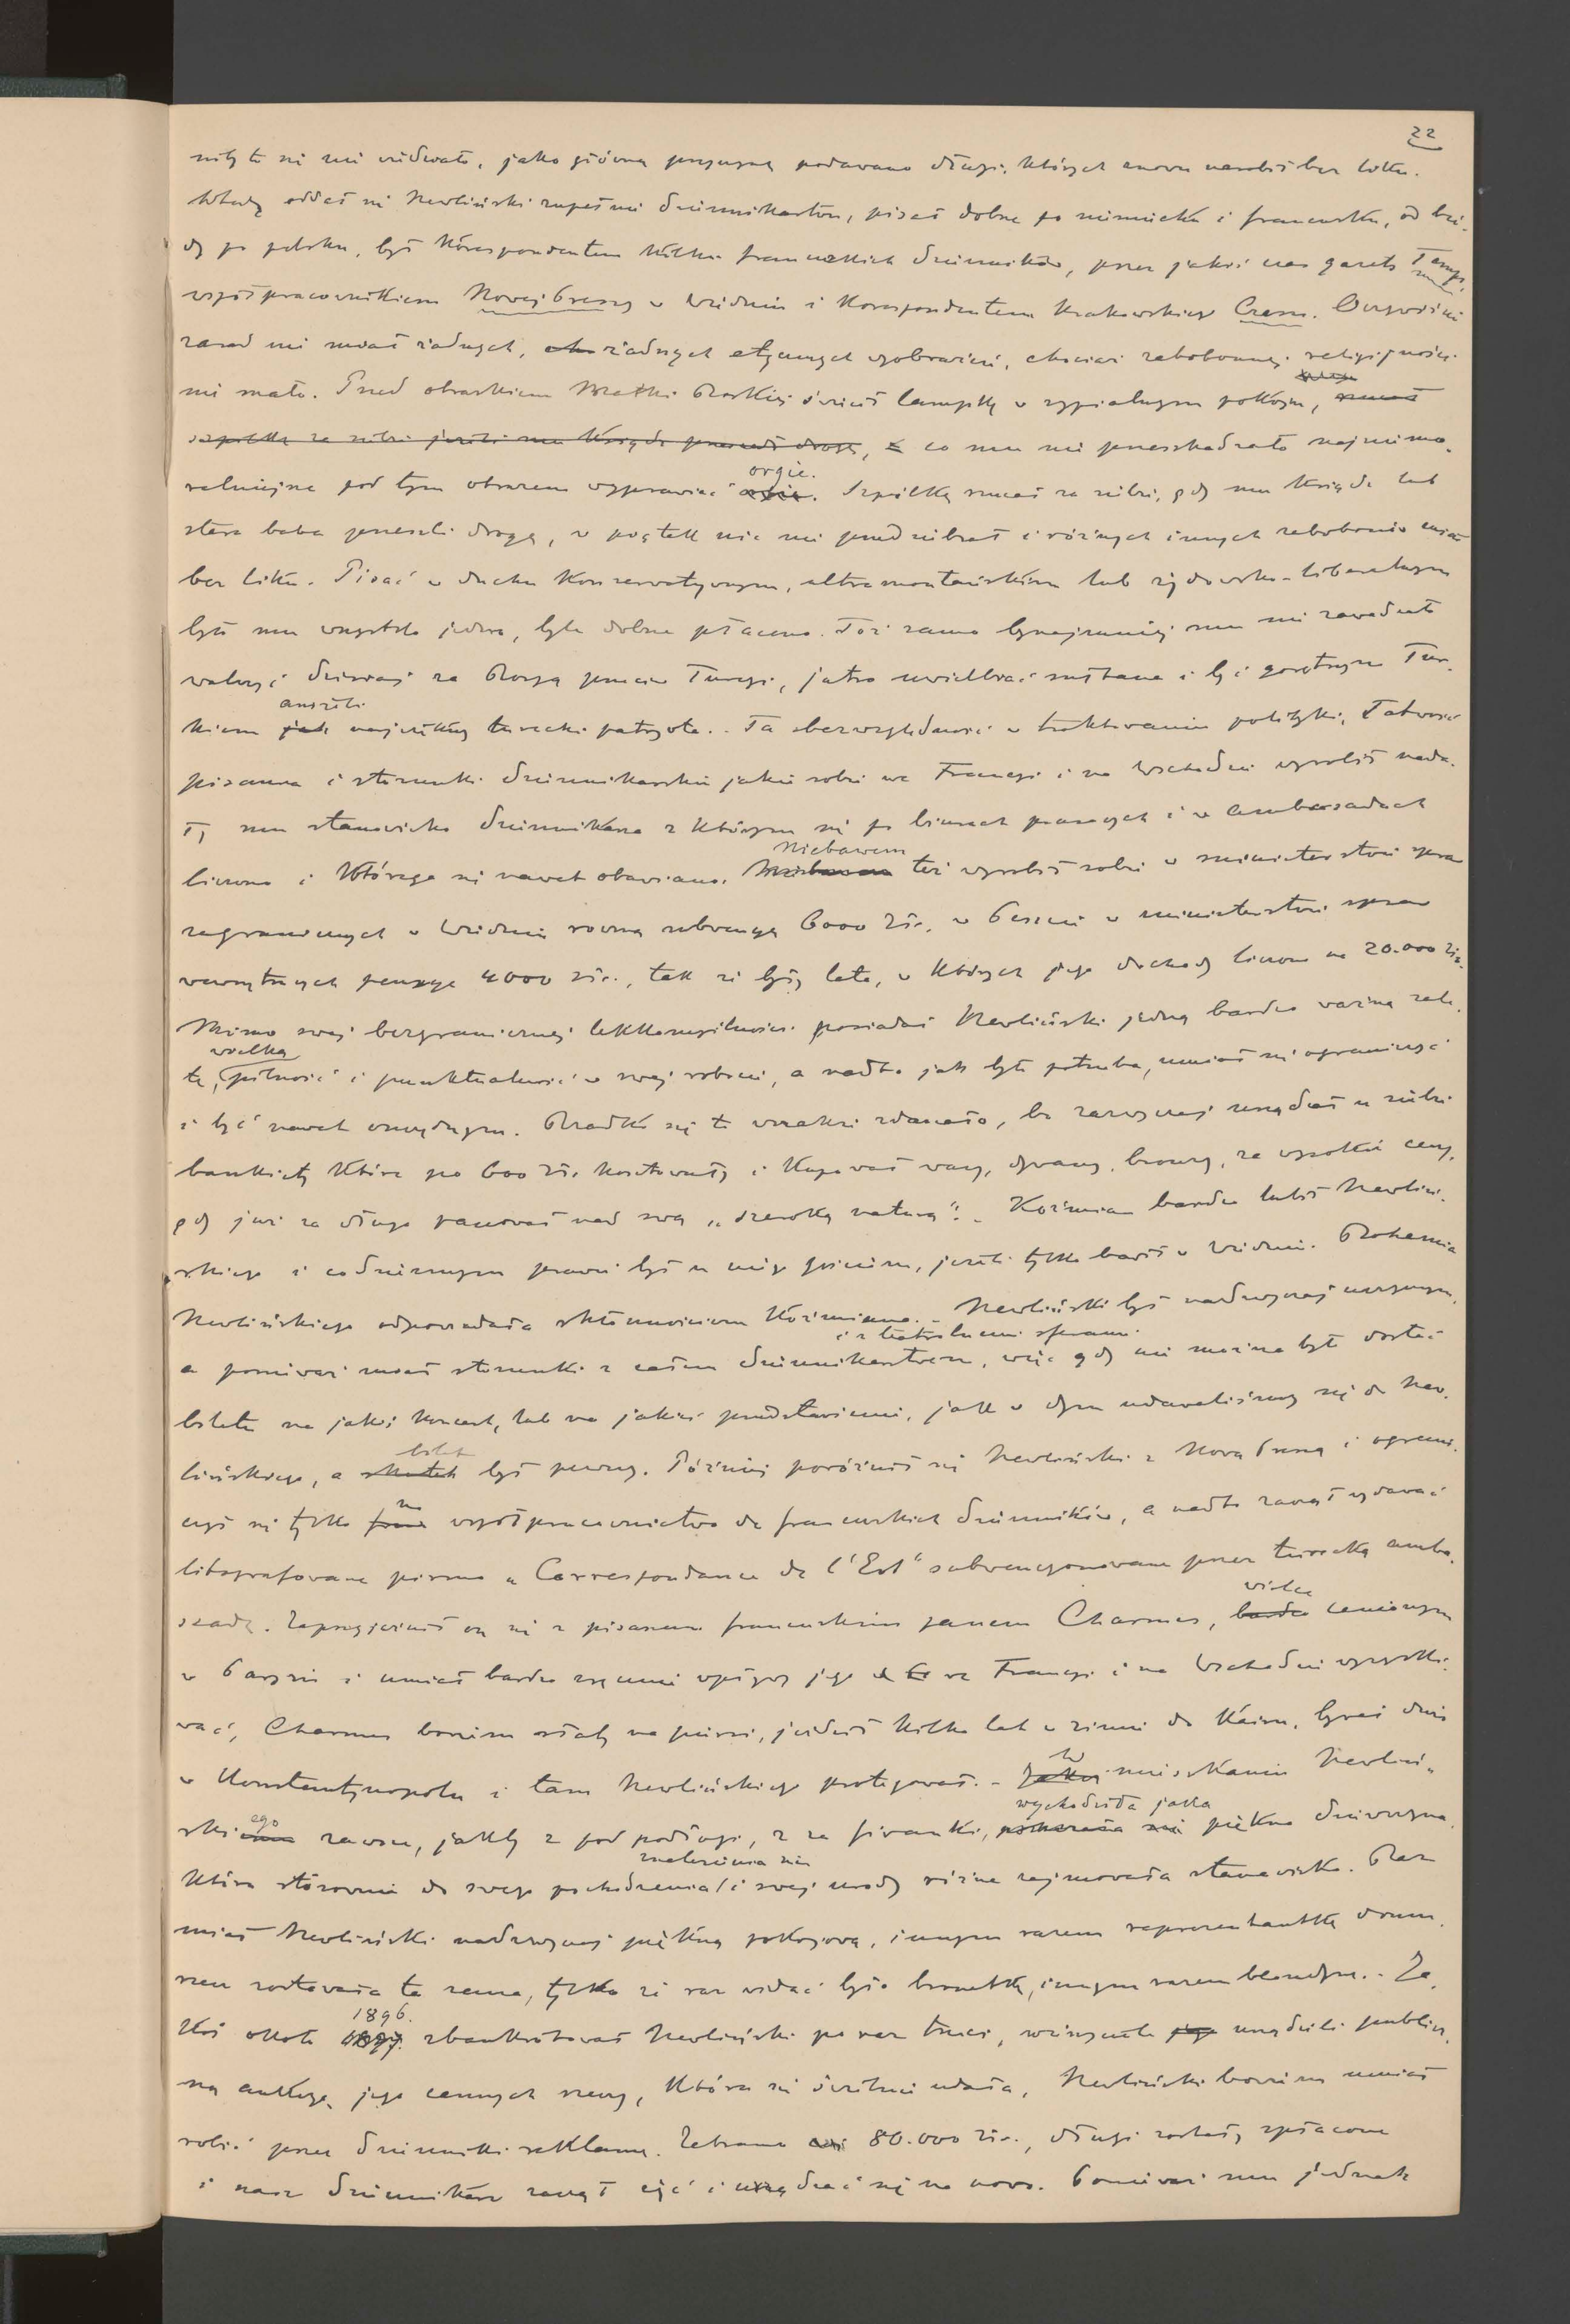 22
niby to się nie udwało, jako główną przyczynę podawano długi, których znowu narobił bez liku.
Wtedy oddał się Newliński zupełnie dziennikarstwu, pisał dobrze po niemiecku i francusku, od bie-
dy po polsku, był korespondentem kilku francuzkich dzienników, przez jakiś czas gazety Temps,
współpracownikiem Nowej Pressy w Wiedniu i korespondentem krakowskiego Czasu. Oczywiście
zasad nie miał żadnych, żadnych etycznych wyobrażeń, chociaż zabobonnej religijności
nie mało. Przed obrazkiem Matki Boskiej świecił lampkę w sypialnym pokoju, rzucał
szpilkę za siebie jeżeli mu ksiądz przeszedł drogę, co mu nie przeszkadzało najniemo-
ralniejsze pod tym obrazem wyprawiać orgie. Szpilkę rzucał za siebie, gdy mu ksiądz lub
stara baba przeszli drogę, w piątek nic nie przedsiębrał i różnych innych zabobonów miał
bez liku. Pisać w duchu konserwatywnym, ultramontańskim lub żydowsko-liberalnym
było mu wszystko jedno, byle dobrze płacono. Toż samo bynajmniej mu nie zawadzało
walczyć dzisiaj za Rosyą przeciw Turcyi, jutro uwielbiać sułtana i być gorętszym Tur-
kiem aniżeli najwięksy turecki patryota. - Ta bezwzględność w traktowaniu polityki, łatwość
pisania i stosunki dziennikarskie jakie sobie we Francyi i na Wschodzie wyrobił nada-
ły mu stanowisko dziennikarza z którym się po biurach prasowych i w ambasadach
liczono i którego się nawet obawiano. Niebawem też wyrobił sobie w ministerstwie spraw
zagranicznych w Wiedniu roczną subwencyę 6000 złr. w Peszcie w ministerstwie spraw
wewnętrznych pensye 4000 złr., tak że były lata, w których jego dochody liczono na 20.000 złr.
Mimo swej bezgranicznej lekkomyślności posiadał Newliński jedną bardzo ważną zale-
tę, wielką pilność i punktualność w swej robocie, a nadto jak była potrzeba, umiał się ograniczyć
i być nawet oszczędnym. Rzadko się to wszakże zdarzało, bo zazwyczaj urządzał u siebie
bankiety które po 600 złr. kosztowały i kupował wazy, dywany, bronzy, za wysokie ceny,
gdy już za długo panował nad swą „szeroką naturą". - Koźmian bardzo lubił Newliń-
skiego i codziennym prawie był u niego gościem, jeżeli tylko bawił w Wiedniu. Bohemia
Newlińskiego odpowiadała skłonnościom Koźmiana. - Newliński był nadzwyczaj uczynnym,
a ponieważ miał stosunki z całem dziennikarstwem, i z teatralnemi sferami więc gdy nie można było dostać
biletu na jakiś koncert, lub na jakieś przedstawienie, jak w dym udawaliśmy się do New-
lińskiego, a bilet był pewny. Później poróżnił się Newliński z Nową Presą i ograni-
czył się tylko na współpracownictwo do francuskich dzienników, a nadto zaczął wydawać
litografowane pismo „Correspondance de l'Est" subwencyonowane przez turecką amba-
sadę. Zaprzyjaźnił on się z pisarzem francuskim panem Charmes, wielce cenionym
w Paryżu i umiał bardzo zręcznie wpływy jego we Francyi i na Wschodzie wyzyski-
wać, Charmes bowiem słaby na piersi, jeździł kilka lat w zimie do Kairu, bywał dużo
w Konstantynopolu i tam Newlińskiego protegował. - W mieszkaniu Newliń-
skiego zawsze, jakby z pod podłogi, z za firanki, wychodziła jakaś piękna dziewczyna,
która stósownie do swego pochodzenia, znalezienia się i swej urody różne zajmowała stanowisko. Raz
miał Newliński nadzwyczaj piękną pokojową, innym razem reprezentantkę domu,
rzecz zostawała ta sama, tylko że raz widać było brunetkę, innym razem blondynę. - Ja-
koś około 1896. zbankrótował Newliński po raz trzeci, wierzyciele urządzili publicz-
ną aukcyę jego cennych rzeczy, która się świetnie udała, Newliński bowiem umiał
robić przez dzienniki reklamę. Zebrano 80.000 złr., długi zostały spłacone
i nasz dziennikarz zaczął żyć i urządzać się na nowo. Ponieważ mu jednak